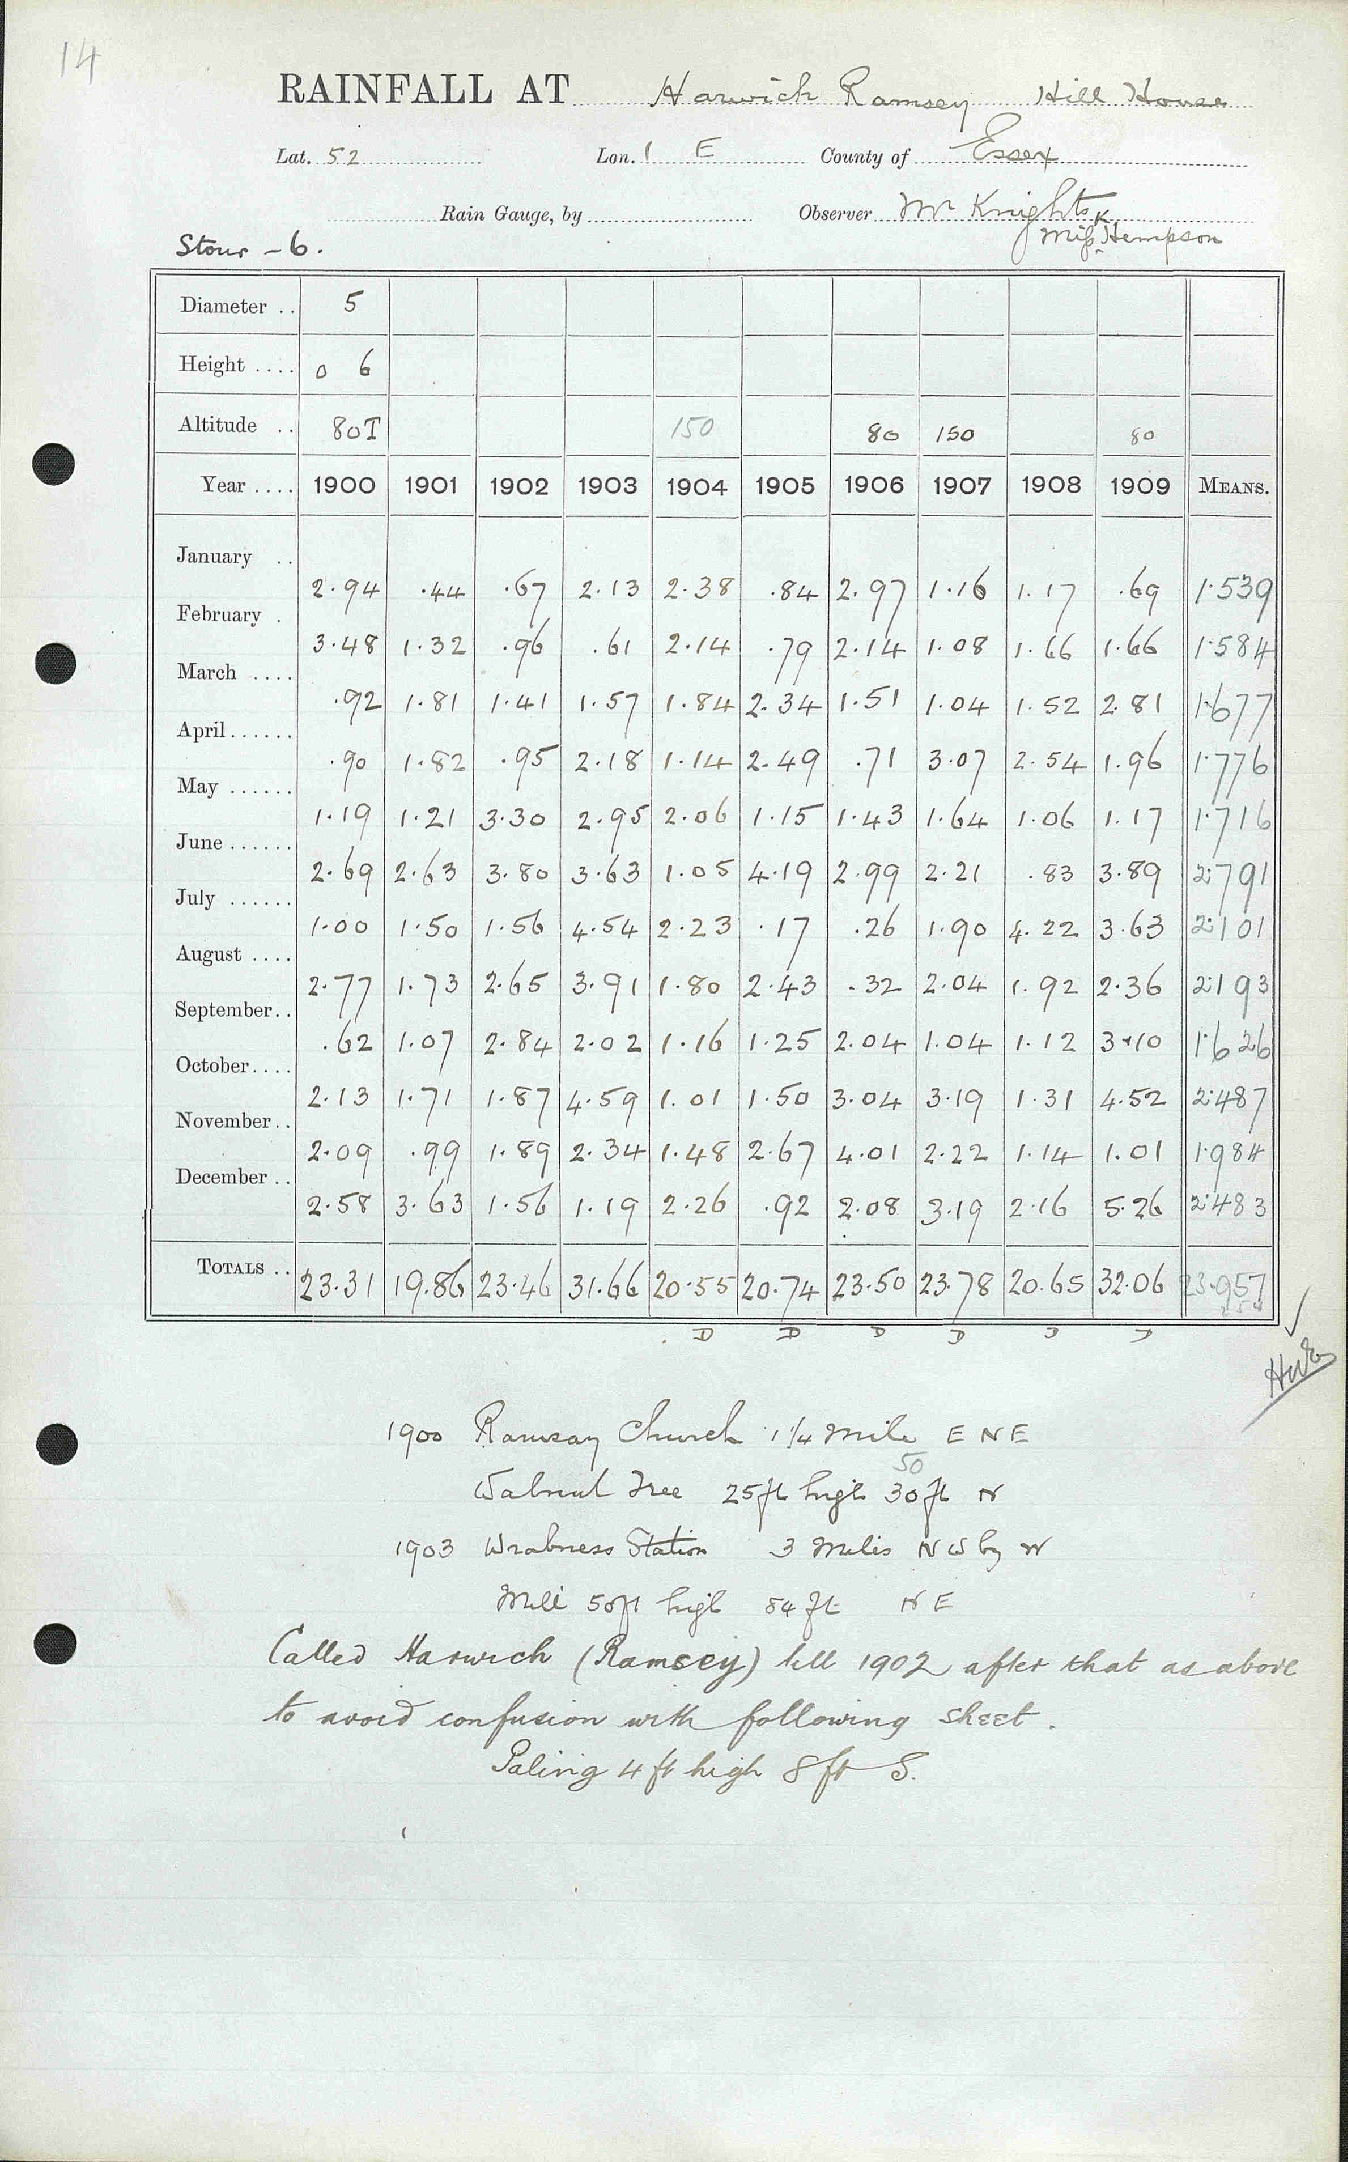 14
RAINFALL AT Harwich Ramsey Hill House
Lat. 52 Lon. 1 E County of Essex
Rain Gauge, by Observer Mr Knights
Miss K. Hempson
Stour - 6.
Diameter .. 5
Height .... 0 6
Altitude .. 80T 150 80 150 80
Year .... 1900 1901 1902 1903 1904 1905 1906 1907 1908 1909 MEANS.
January .. 2.94 .44 .67 2.13 2.38 .84 2.97 1.16 1.17 .69 1.539
February . 3.48 1.32 .96 .61 2.14 .79 2.14 1.08 1.66 1.66 1.584
March .... .92 1.81 1.41 1.57 1.84 2.34 1.51 1.04 1.52 2.81 1.677
April...... .90 1.82 .95 2.18 1.14 2.49 .71 3.07 2.54 1.96 1.776
May ...... 1.19 1.21 3.30 2.95 2.06 1.15 1.43 1.64 1.06 1.17 1.716
June ...... 2.69 2.63 3.80 3.63 1.05 4.19 2.99 2.21 .83 3.89 2.791
July ...... 1.00 1.50 1.56 4.54 2.23 .17 .26 1.90 4.22 3.63 2.101
August .... 2.77 1.73 2.65 3.91 1.80 2.43 .32 2.04 1.92 2.36 2.193
September.. .62 1.07 2.84 2.02 1.16 1.25 2.04 1.04 1.12 3.10 1.626
October.... 2.13 1.71 1.87 4.59 1.01 1.50 3.04 3.19 1.31 4.52 2.487
November.. 2.09 .99 1.89 2.34 1.48 2.67 4.01 2.22 1.14 1.01 1.984
December .. 2.58 3.63 1.56 1.19 2.26 .92 2.08 3.19 2.16 5.26 2.483
TOTALS .. 23.31 19.86 23.46 31.66 20.55 20.74 23.50 23.78 20.65 32.06 23.957
D D D D D D
1900 Ramsay Church 1 1/4 Mile E N E
50
Walnut Tree 25ft high 30ft N
1903 Wrabness Station 3 Miles NW by W
Mill 50ft high 84 ft N E
Called Harwich (Ramsey) till 1902 after that as above
to avoid confusion with following sheet.
Paling 4 ft high 8 ft S.